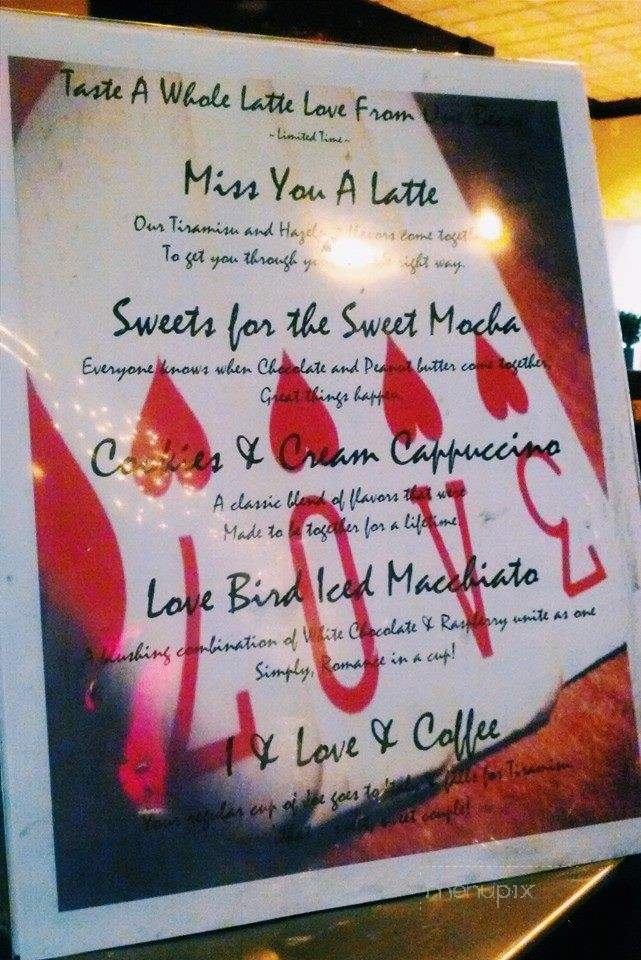 Taste A Whole Latte Love From
~Limited Time~
Miss You A Latte
Our Tiramisu and flavors come
To get you through right way.
Sweets for the Sweet Mocha
Everyone knows when Chocolate and Peanut butter come together,
Great things happen
Cookies & Cream Cappuccino
A classic blend of flavors that were
Made to be together for a lifetime!
Love Bird Iced Macchiato
A blushing combination of White Chocolate & Raspberry unite as one
Simply, Romance in a cup!
I & Love & Coffee
Your regular cup of Joe goes to Italy & falls for Tiramisu
sweet couple!
LOVE
menupix